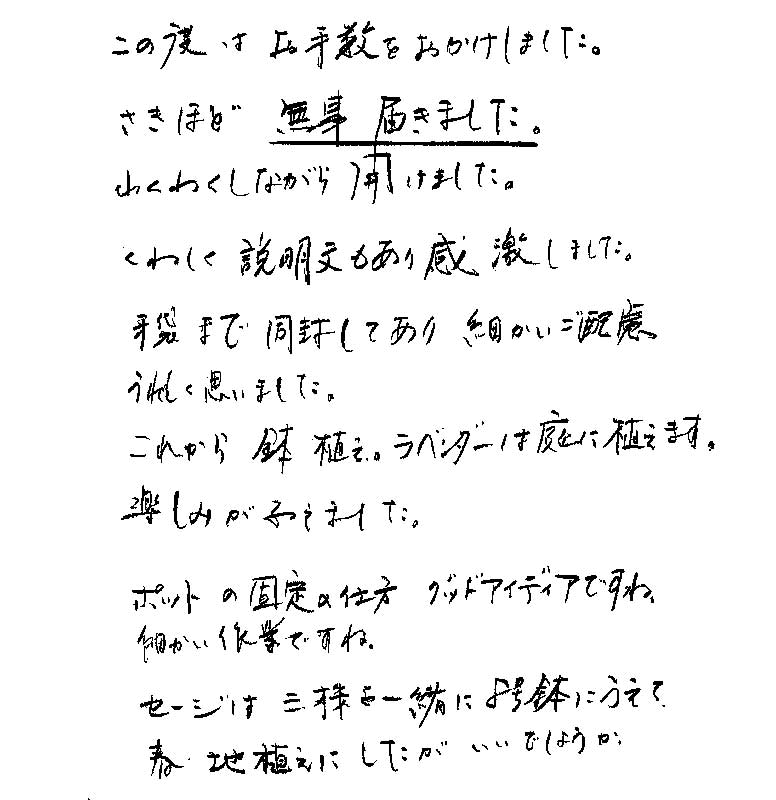 この度はお手数をおかけしました。
さきほど 無事 届きました。
わくわくしながら 開けました。
くわしく 説明文もあり感激しました。
手袋まで 同封してあり 細かいご配慮
うれしく思いました。
これから 鉢植え。ラベンダーは庭に植えます。
楽しみがふえました。
ポットの固定の仕方 グッドアイディアですね、
細かい作業ですね。
セージは三株を一緒に8号鉢にうえて
春 地植えにしたがいいでしょうか